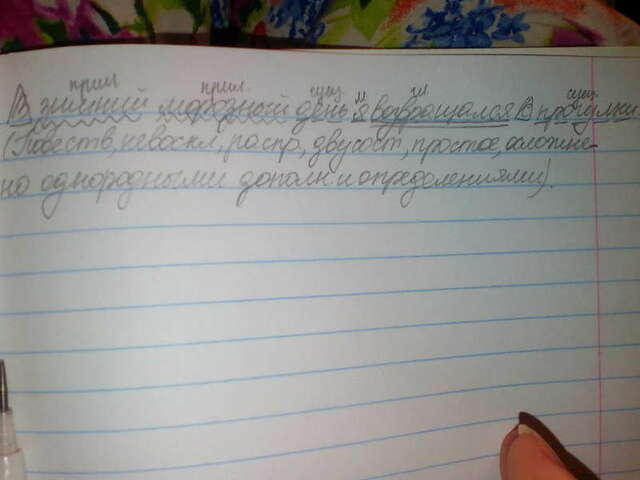 прил. прил. сущ. м. гл. сущ.
В зимний морозный день я возвращался В прогулки
(Повеств, невоскл, распр, двусост, простое, осложне-
но однородными дополн. и определениями).